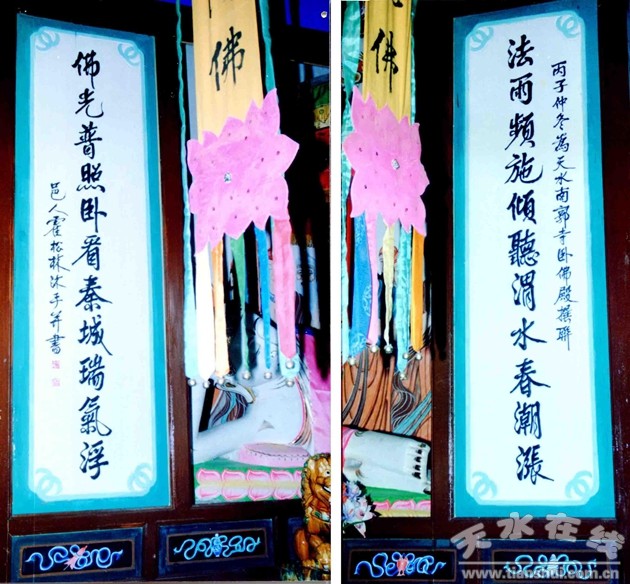 丙子仲冬為天水南郭寺卧佛殿撰聯
法雨頻施傾聽渭水春潮漲
佛
佛
佛光普照卧看秦城瑞氣浮
邑人霍松林沐手并書
天水在线
www.tianshui.com.cn